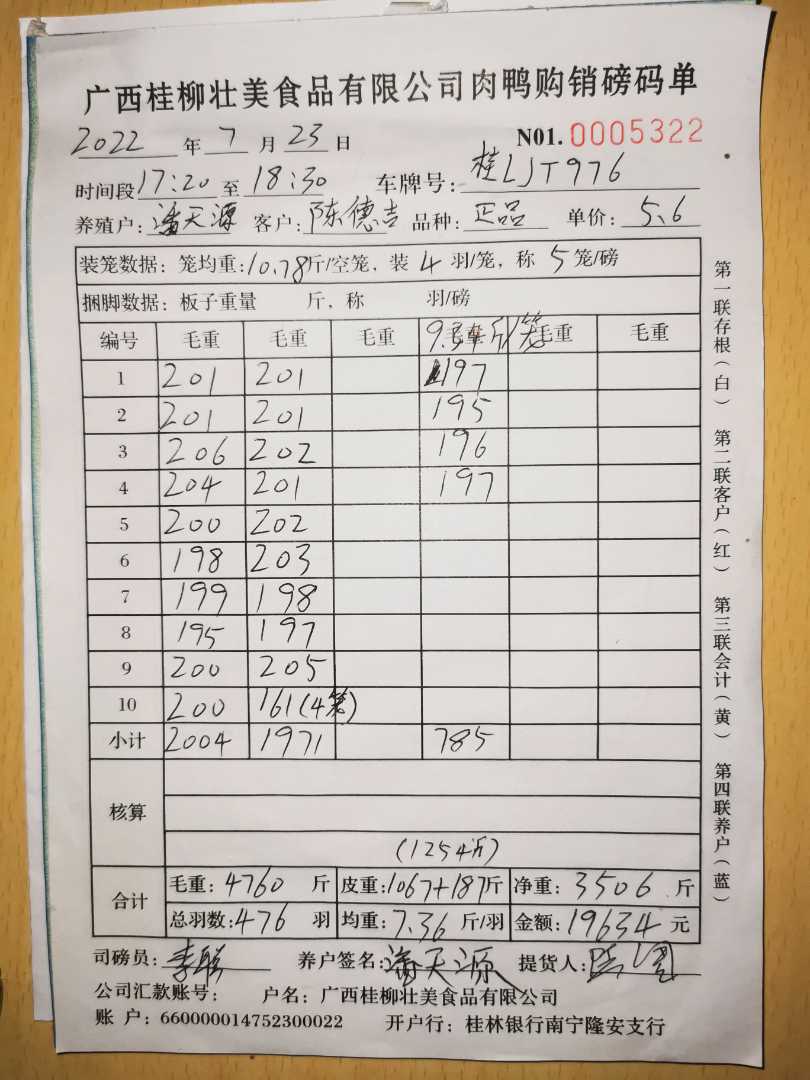 广西桂柳壮美食品有限公司肉鸭购销磅码单
2022 年 7 月 23 日 N01. 0005322
时间段 17:20 至 18:30 车牌号: 桂LJT976
养殖户: 潘天源 客户: 陈德吉 品种: 正品 单价: 5.6
装笼数据: 笼均重: 10.78 斤/空笼, 装 4 羽/笼, 称 5 笼/磅
捆脚数据: 板子重量 斤, 称 羽/磅
编号 毛重 毛重 毛重 9.34斤/笼 毛重 毛重
1 201 201 197
2 201 201 195
3 206 202 196
4 204 201 197
5 200 202
6 198 203
7 199 198
8 195 197
9 200 205
10 200 161(4笼)
小计 2004 1971 785
核算
(1254斤)
合计
毛重: 4760 斤 皮重: 1067+187斤 净重: 3506 斤
总羽数: 476 羽 均重: 7.36 斤/羽 金额: 19634 元
司磅员: 养户签名: 潘天源 提货人:
公司汇款账号: 户名: 广西桂柳壮美食品有限公司
账 户: 660000014752300022 开户行: 桂林银行南宁隆安支行
第一联存根(白) 第二联客户(红) 第三联会计(黄) 第四联养户(蓝)